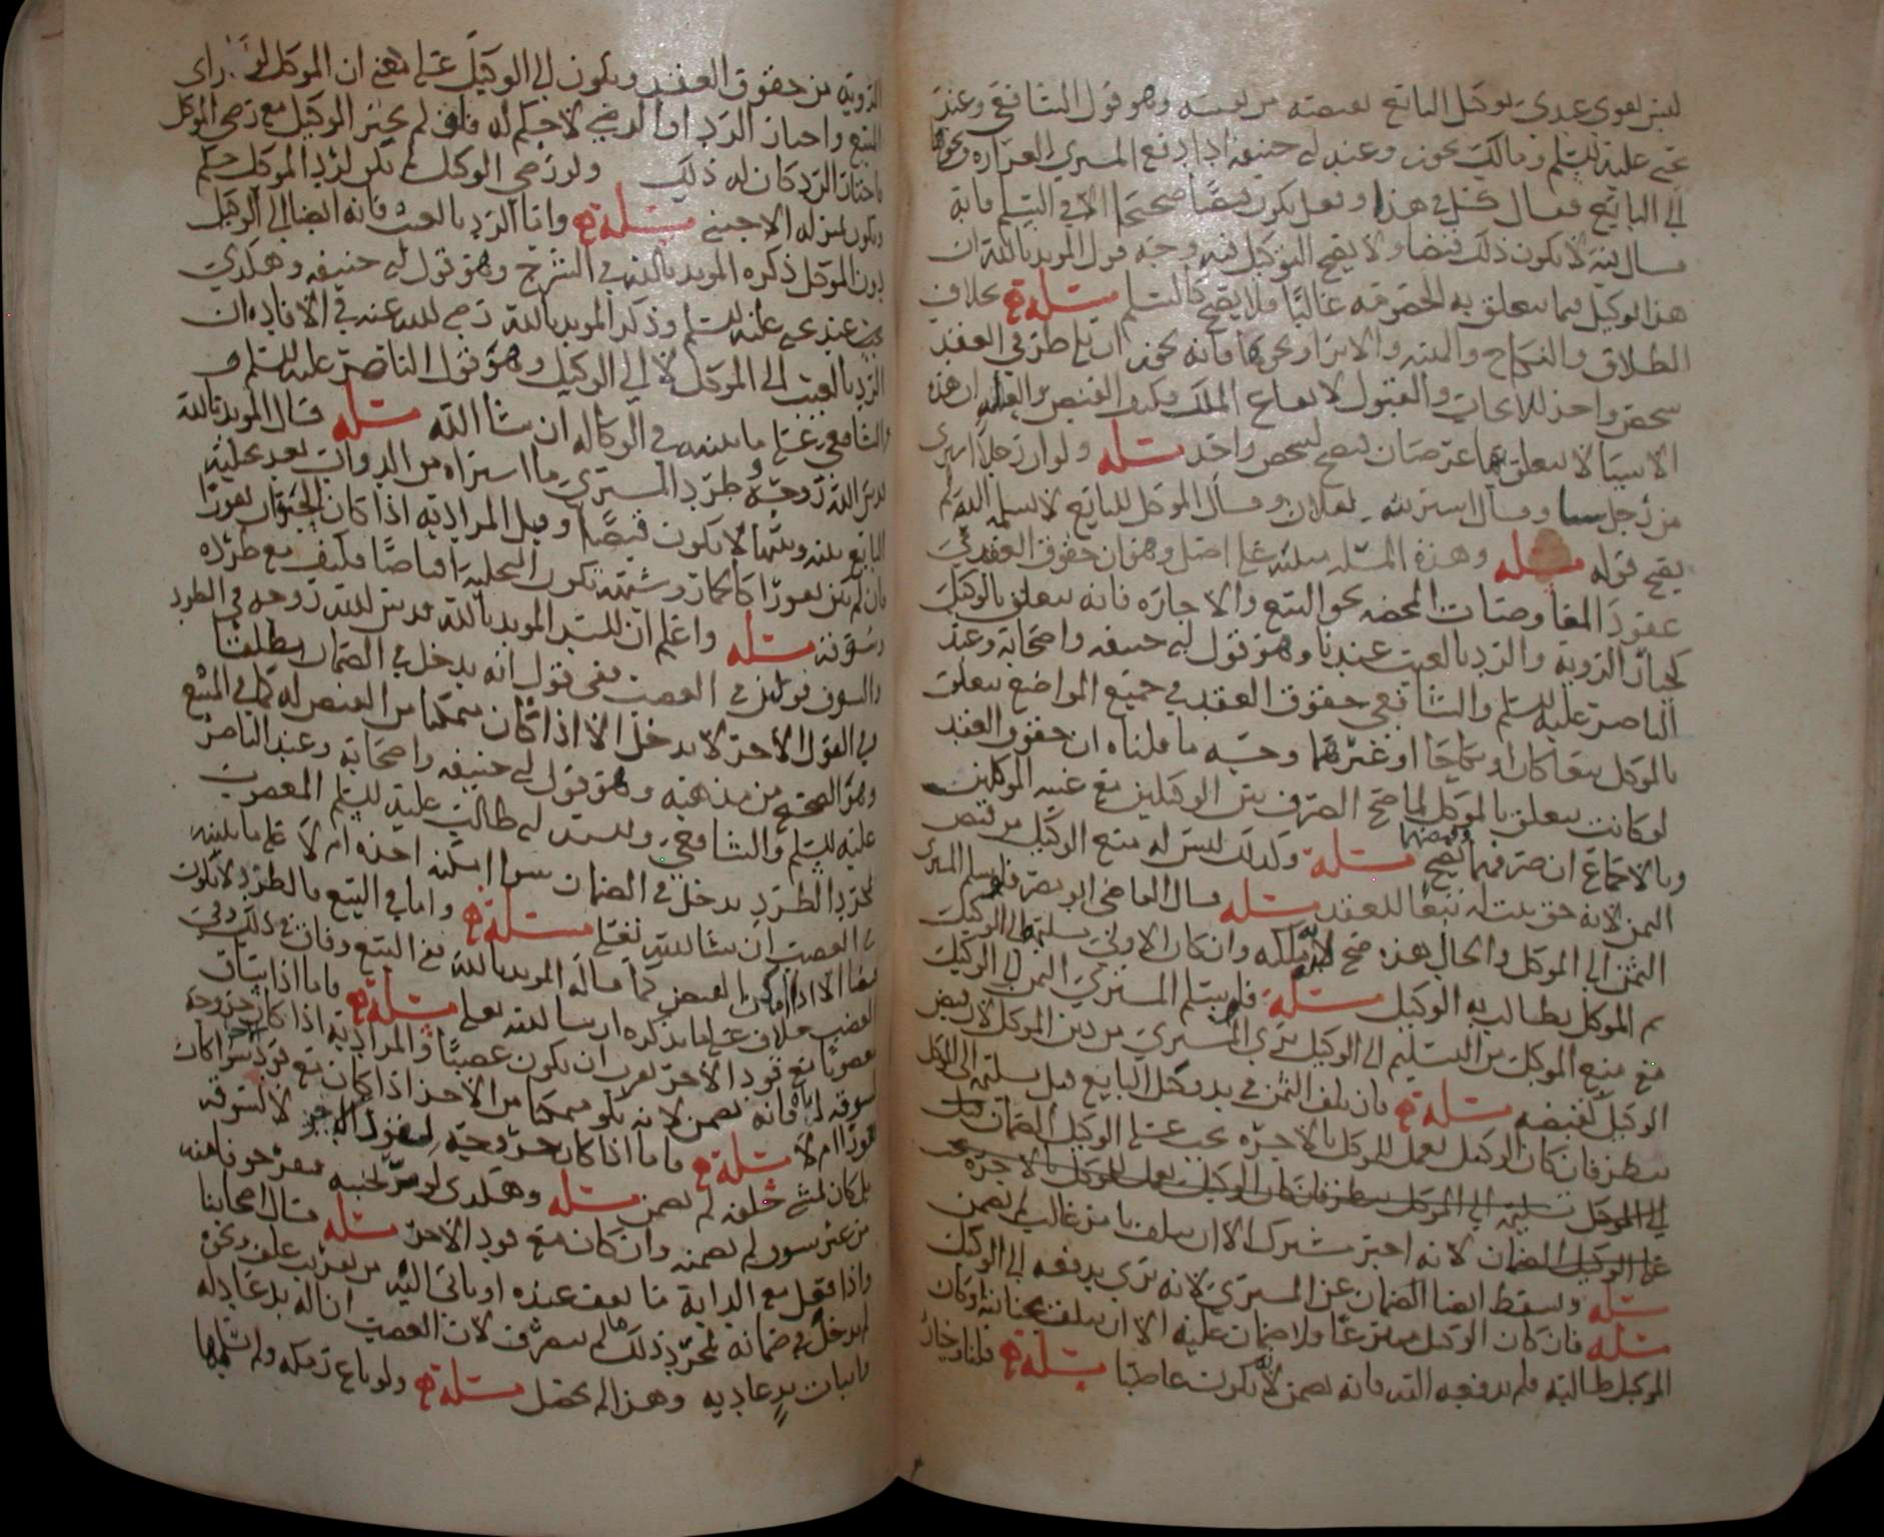 ليس لقوي عندي توكيل البائع لقبضه من نفسه وهو قول الشافعي وعند
عليه السلم ومالك يجوز وعند ابي حنيفه اذا دفع المشتري الغراره ونحوها
الى البائع فقال كل في هذا وفعل يكون قبضا صحيحا الا في السلم فانه
قال فيه لا يكون ذلك قبضا ولا يصح التوكيل فيه وجه قول المويد بالله ان
هذا توكيل فيما يتعلق به الحقوق غالبا فلا يصح كالسلم مسئلة بخلاف
الطلاق والنكاح والهبه والابرا ونحوها فانه يجوز ان يلي طرفي العقد
شخص واحد للايجاب والقبول لايقاع الملك وكيف القبض ان هذه
الاشيا لا يتعلق بها عرضان فيصح لشخص واحد مسئله ولو ان رجلا اشترى
من رجل شيا وقال اشتريته لفلان وقال الموكل للبائع لا تسلمه اليه لم
يصح قوله مسئله وهذه المسئله مبنيه على اصل وهو ان حقوق العقد في
عقود المعاوضات المحضه نحو البيع والاجاره فانه يتعلق بالوكيل
كخيار الرويه والرد بالعيب عندنا وهو قول ابي حنيفه واصحابه وعند
الناصر عليه السلم والشافعي حقوق العقد في جميع المواضع يتعلق
بالموكل بيعا كان او نكاحا او غيرهما وجه ما قلناه ان حقوق العقد
لو كانت يتعلق بالموكل لما صح الصرف بين الوكيلين مع غيبه الموكلين
وبالاجماع ان صرفهما وقبضهما يصح مسئلة وكذلك ليس له منع الوكيل من قبض
الثمن لانه حق يثبت له تبعا للعقد مسئله قال القاضي ابو مضر فلو سلم المشتري
الثمن الى الموكل والحال هذه صح لانه ملكه وان كان الاولى تسليمه الى الوكيل
ثم الموكل يطالب به الوكيل مسئلة فلو سلم المشتري الثمن الى الوكيل
مع منع الموكل من التسليم الى الوكيل بري المشتري من دين الموكل لان قبض
الوكيل كقبضه مسئلة فان تلف الثمن في يد وكيل البايع قبل تسليمه الى الموكل
ينظر فان كان الوكيل يعمل للموكل بالاجره يجب على الوكيل الضمان
الى الموكل تسليمه الى الموكل ينظر فان كان الوكيل يعمل للموكل بالاجره يجب
على الوكيل الضمان لانه اجير مشترك الا ان يتلف بامر غالب لم يضمن
مسئله ويسقط ايضا الضمان عن المشتري لانه بري بدفعه الى الوكيل
مسئله فان كان الوكيل متبرعا ولا ضمان عليه الا ان يتلف بجنايته او كان
الموكل طالبه فلم يدفعه اليه فانه يضمن لانه يكون غاصبا مسئلة قلنا وخيار
الرويه من حقوق العقد ويكون الى الوكيل على معنى ان الموكل لو راى
المبيع واختار الرد او الرضى لا حكم له فلو لم يختر الوكيل مع رضى الموكل
واختار الرد كان له ذلك ولو رضي الوكيل لم يكن لرد الموكل حكم
ويكون بمنزله الاجنبي مسئلة واما الرد بالعيب فانه ايضا الى الوكيل
دون الموكل ذكره المويد بالله في الشرح وهو قول ابي حنيفه وهكذي
عند يحيى عليه السلم وذكر المويد بالله رضي الله عنه في الافاده ان
الرد بالعيب الى الموكل لا الى الوكيل وهو قول الناصر عليه السلم و
الشافعي على ما نبينه في الوكاله ان شا الله مسئله قال المويد بالله
قدس الله روحه وطرد المشتري ما اشتراه من الدواب بعد تخليه
البائع بينه وبينها لا يكون قبضا وقيل المراد به اذا كان الحيوان نفورا
فان لم يكن نفورا كالحمار وشبهه تكون التخليه اقباضا فكيف مع طرده
وسوقه مسئله واعلم ان السيد المويد بالله قدس الله روحه في الطرد
والسوق قولين في الغصب ففي قول انه يدخل في الضمان مطلقا
في القول الاخر لا يدخل الا اذا كان متمكنا من القبض له كما في البيع
وهو الصحيح من مذهبه وهو قول ابي حنيفه واصحابه وعند الناصر
عليه السلم والشافعي والسيد ابي طالب عليه السلم المغصوب
بمجرد الطرد يدخل في الضمان سوا امكنه اخذه ام لا على ما نبينه
في الغصب ان شا الله تعالى مسئلة واما في البيع بالطرد لا يكون
قبضا الا اذا امكن القبض كما قاله المويد بالله في البيع وفارق ذلك في
الغصب بخلاف على ما نذكره ان شا الله تعالى مسئلة فاما اذا ساق
بعصوبا مع قود الاخر يقرب ان يكون غصبا والمراد به اذا كان خروجه
لسوقه اياه فانه يضمن لانه يكون متمكنا من الاخذ اذا كان مع قود سوا كان
نفورا ام لا مسئلة فاما اذا كان خروجه لقود الاخر لا لسوقه
بل كان يمشي خلفه لم يضمن مسئله وهكذى لو مر بجنبه
من غير سوق لم يضمنه وان كان مع قود الاخر مسئله قال اصحابنا
واذا فعل مع الدابه ما يقف عنده او ياتي اليه من تقريب علف ونحوه
لم يدخل في ضمانه بمجرد ذلك ما لم يتصرف لان الغصب ازاله يد عادله
واثبات يد عاديه وهذا لم يحصل مسئلة ولو باع رمكه ولم يسلمها